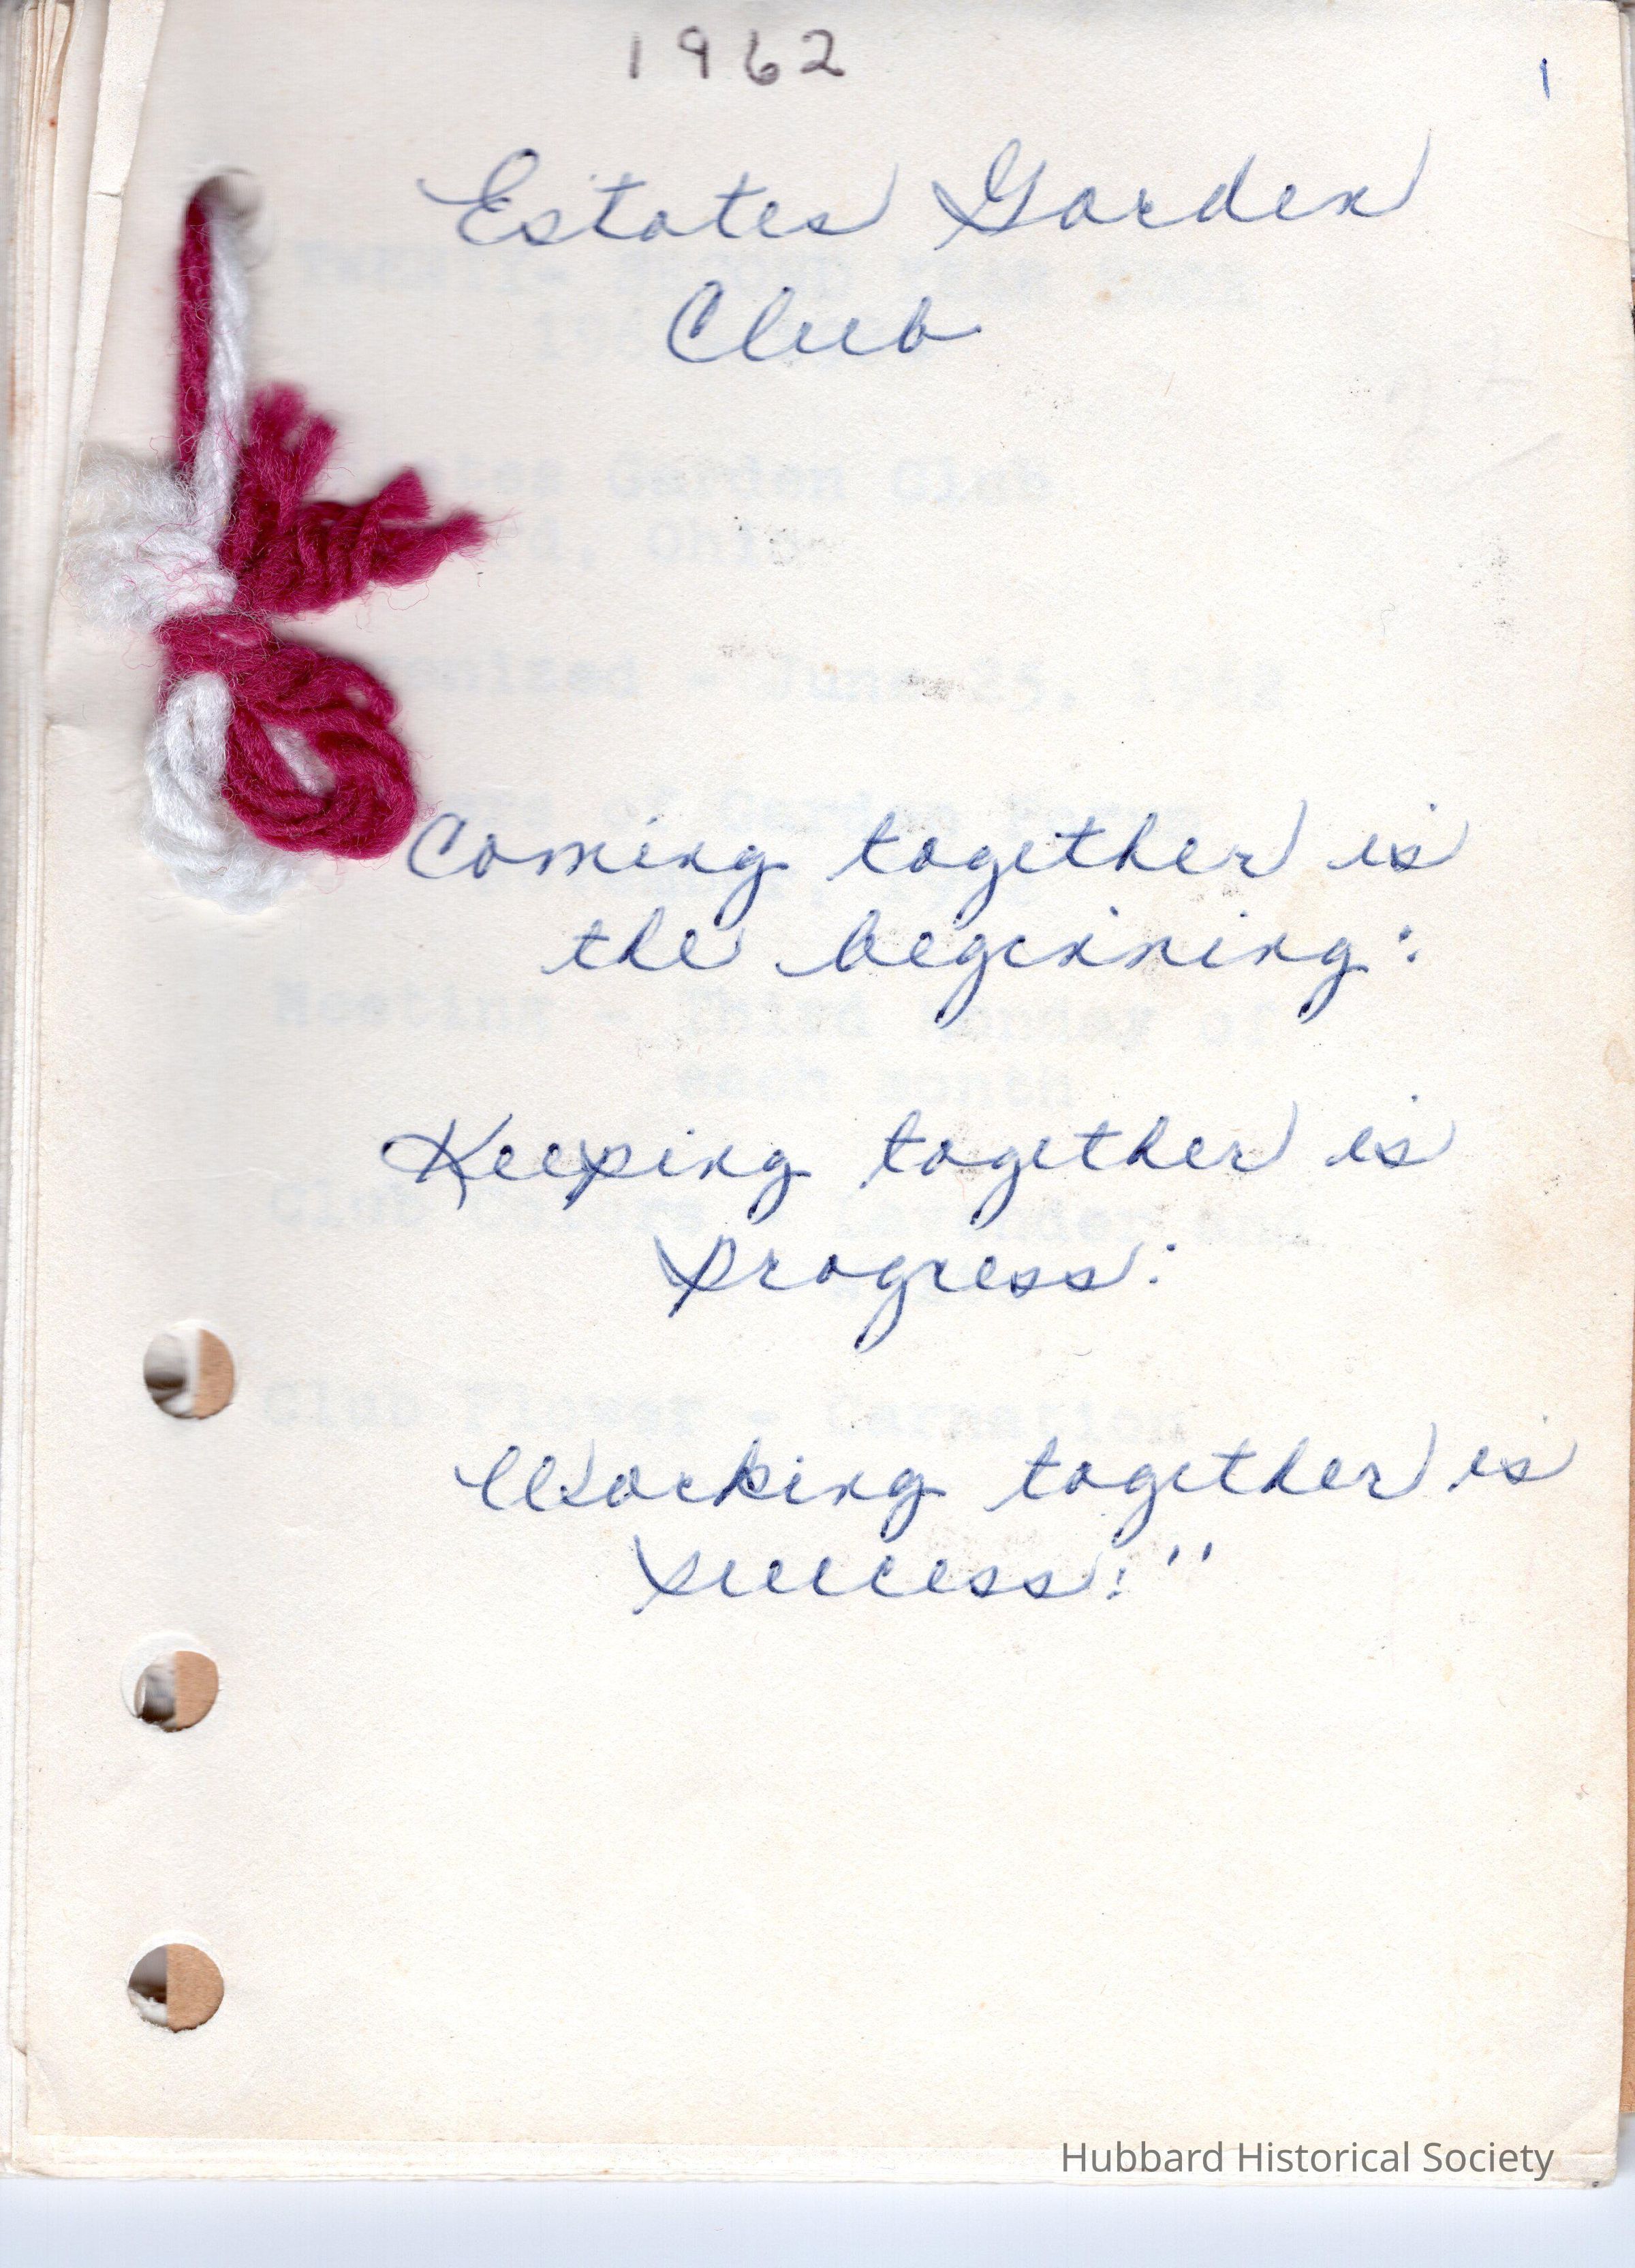 1962
1
Estates Garden
Club
Coming together is
the beginning:
Keeping together is
progress:
Working together is
success:"
Hubbard Historical Society